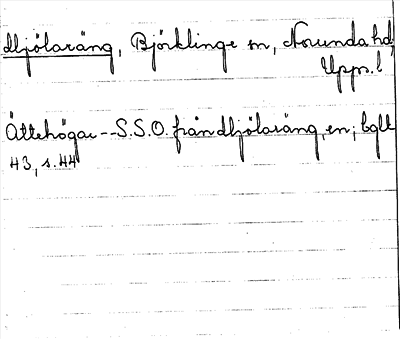 Mjölaräng, Björklinge sn, Norunda hd,
Upps. l
Ättehögar -- S.S.O. från Mjölaräng, en; bglt
43, s. 44